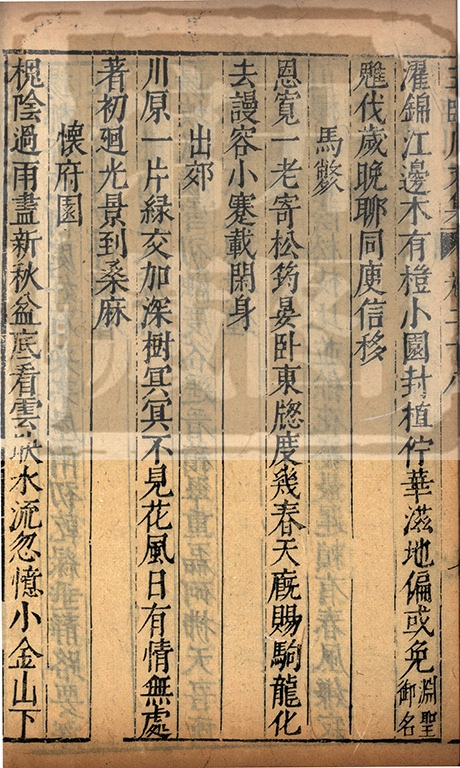 濯錦江邊木有橙小園封植佇華滋地偏或免淵聖御名
魋伐歲晚聊同庾信移
馬斃
恩寬一老寄松筠晏臥東牕度幾春天廐賜駒龍化
去謾容小蹇載閑身
出郊
川原一片緑交加深樹冥冥不見花風日有情無處
著初迴光景到桑麻
懷府園
槐陰過雨盡新秋盆底看雲
水流忽憶小金山下